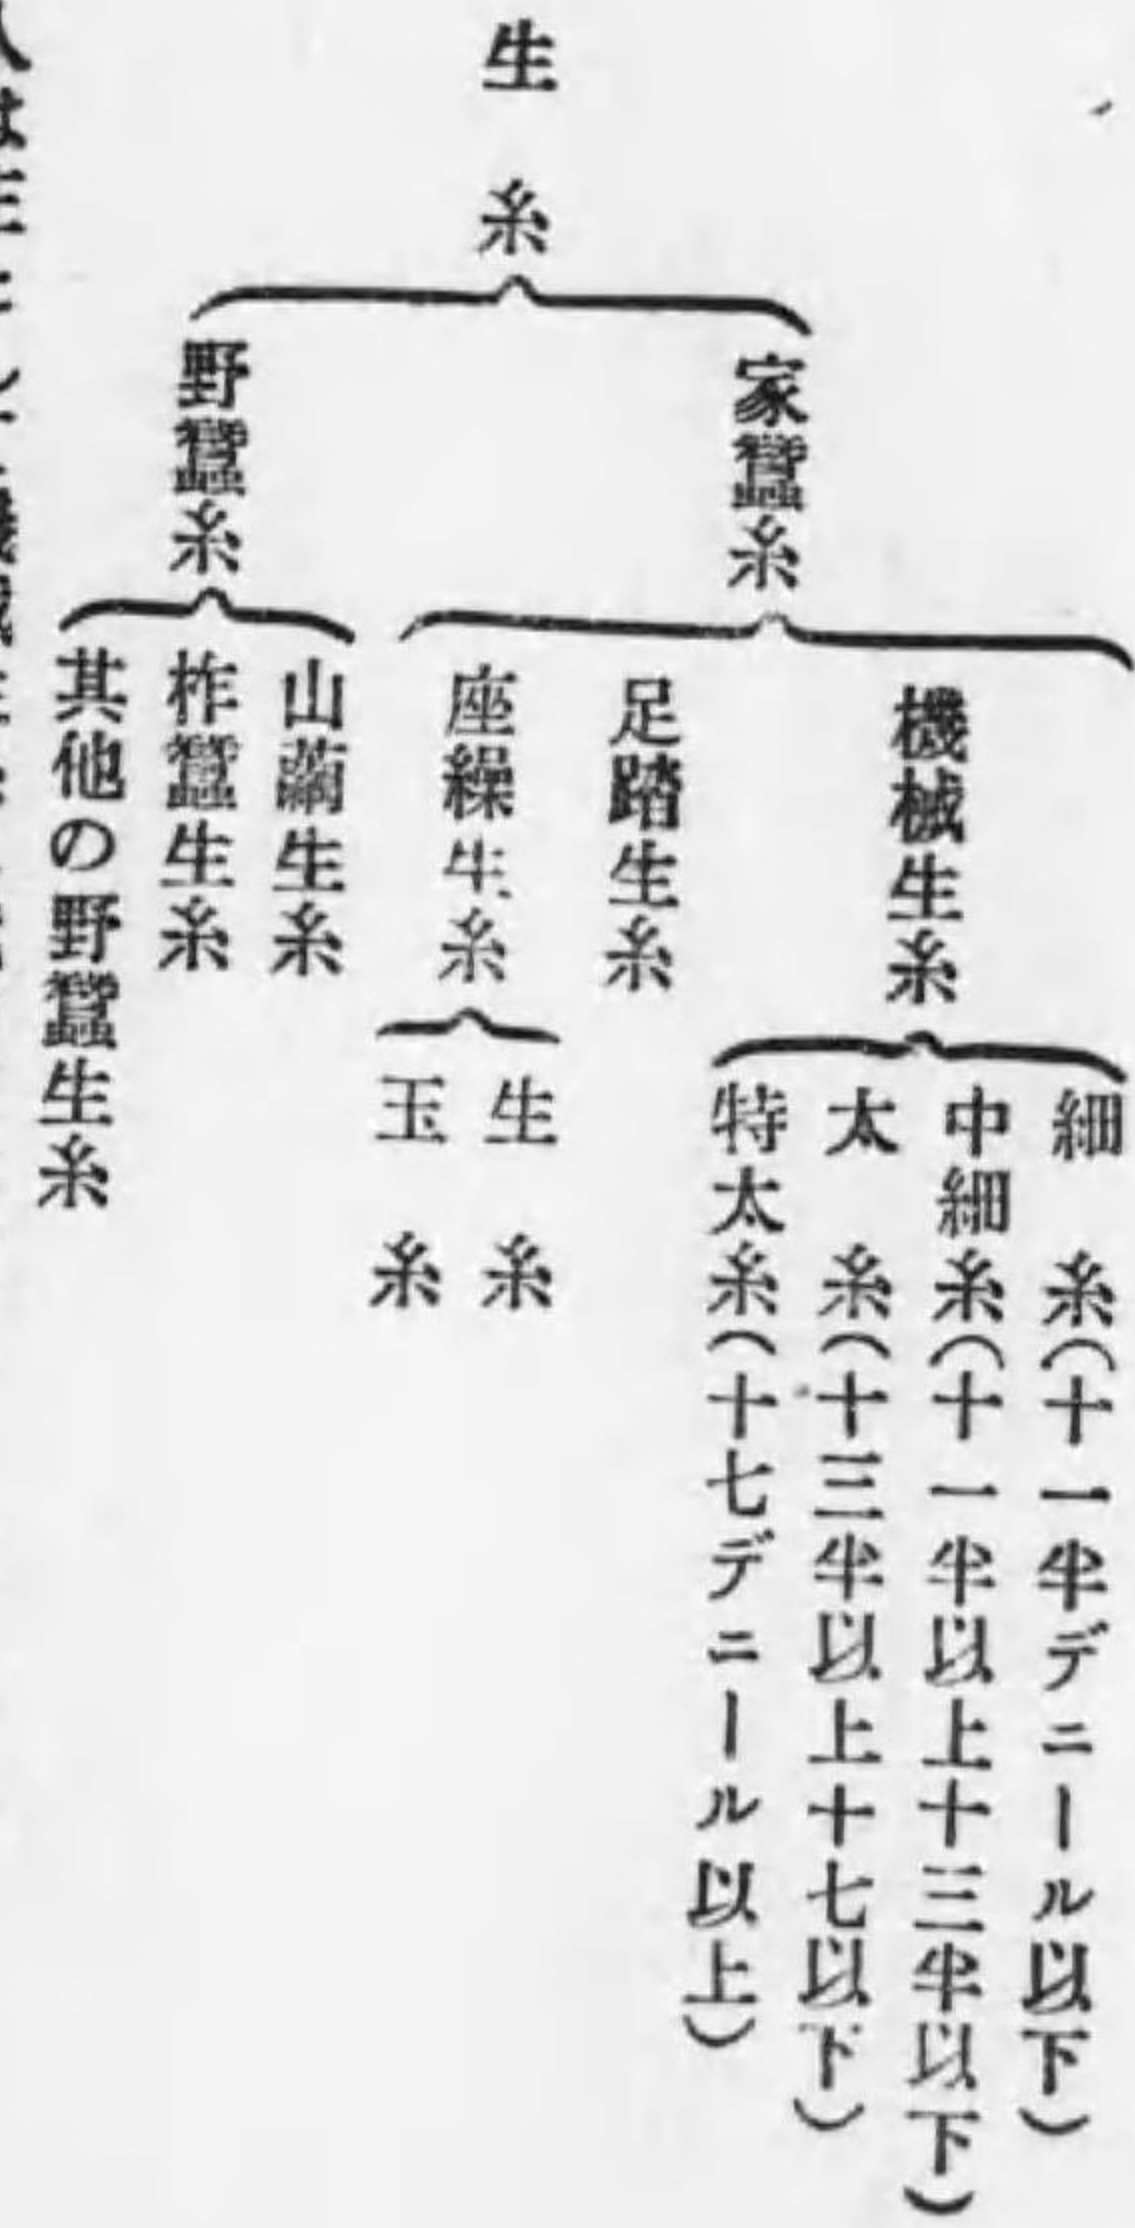 生糸
家蠶糸
機械生糸
細糸(十一半デニール以下)
中細糸(十一半以上十三半以下)
太糸(十三半以上十七以下)
特太糸(十七デニール以上)
足踏生糸
座繰生糸
生糸
玉糸
野蠶糸
山繭生糸
柞蠶生糸
其他の野蠶生糸